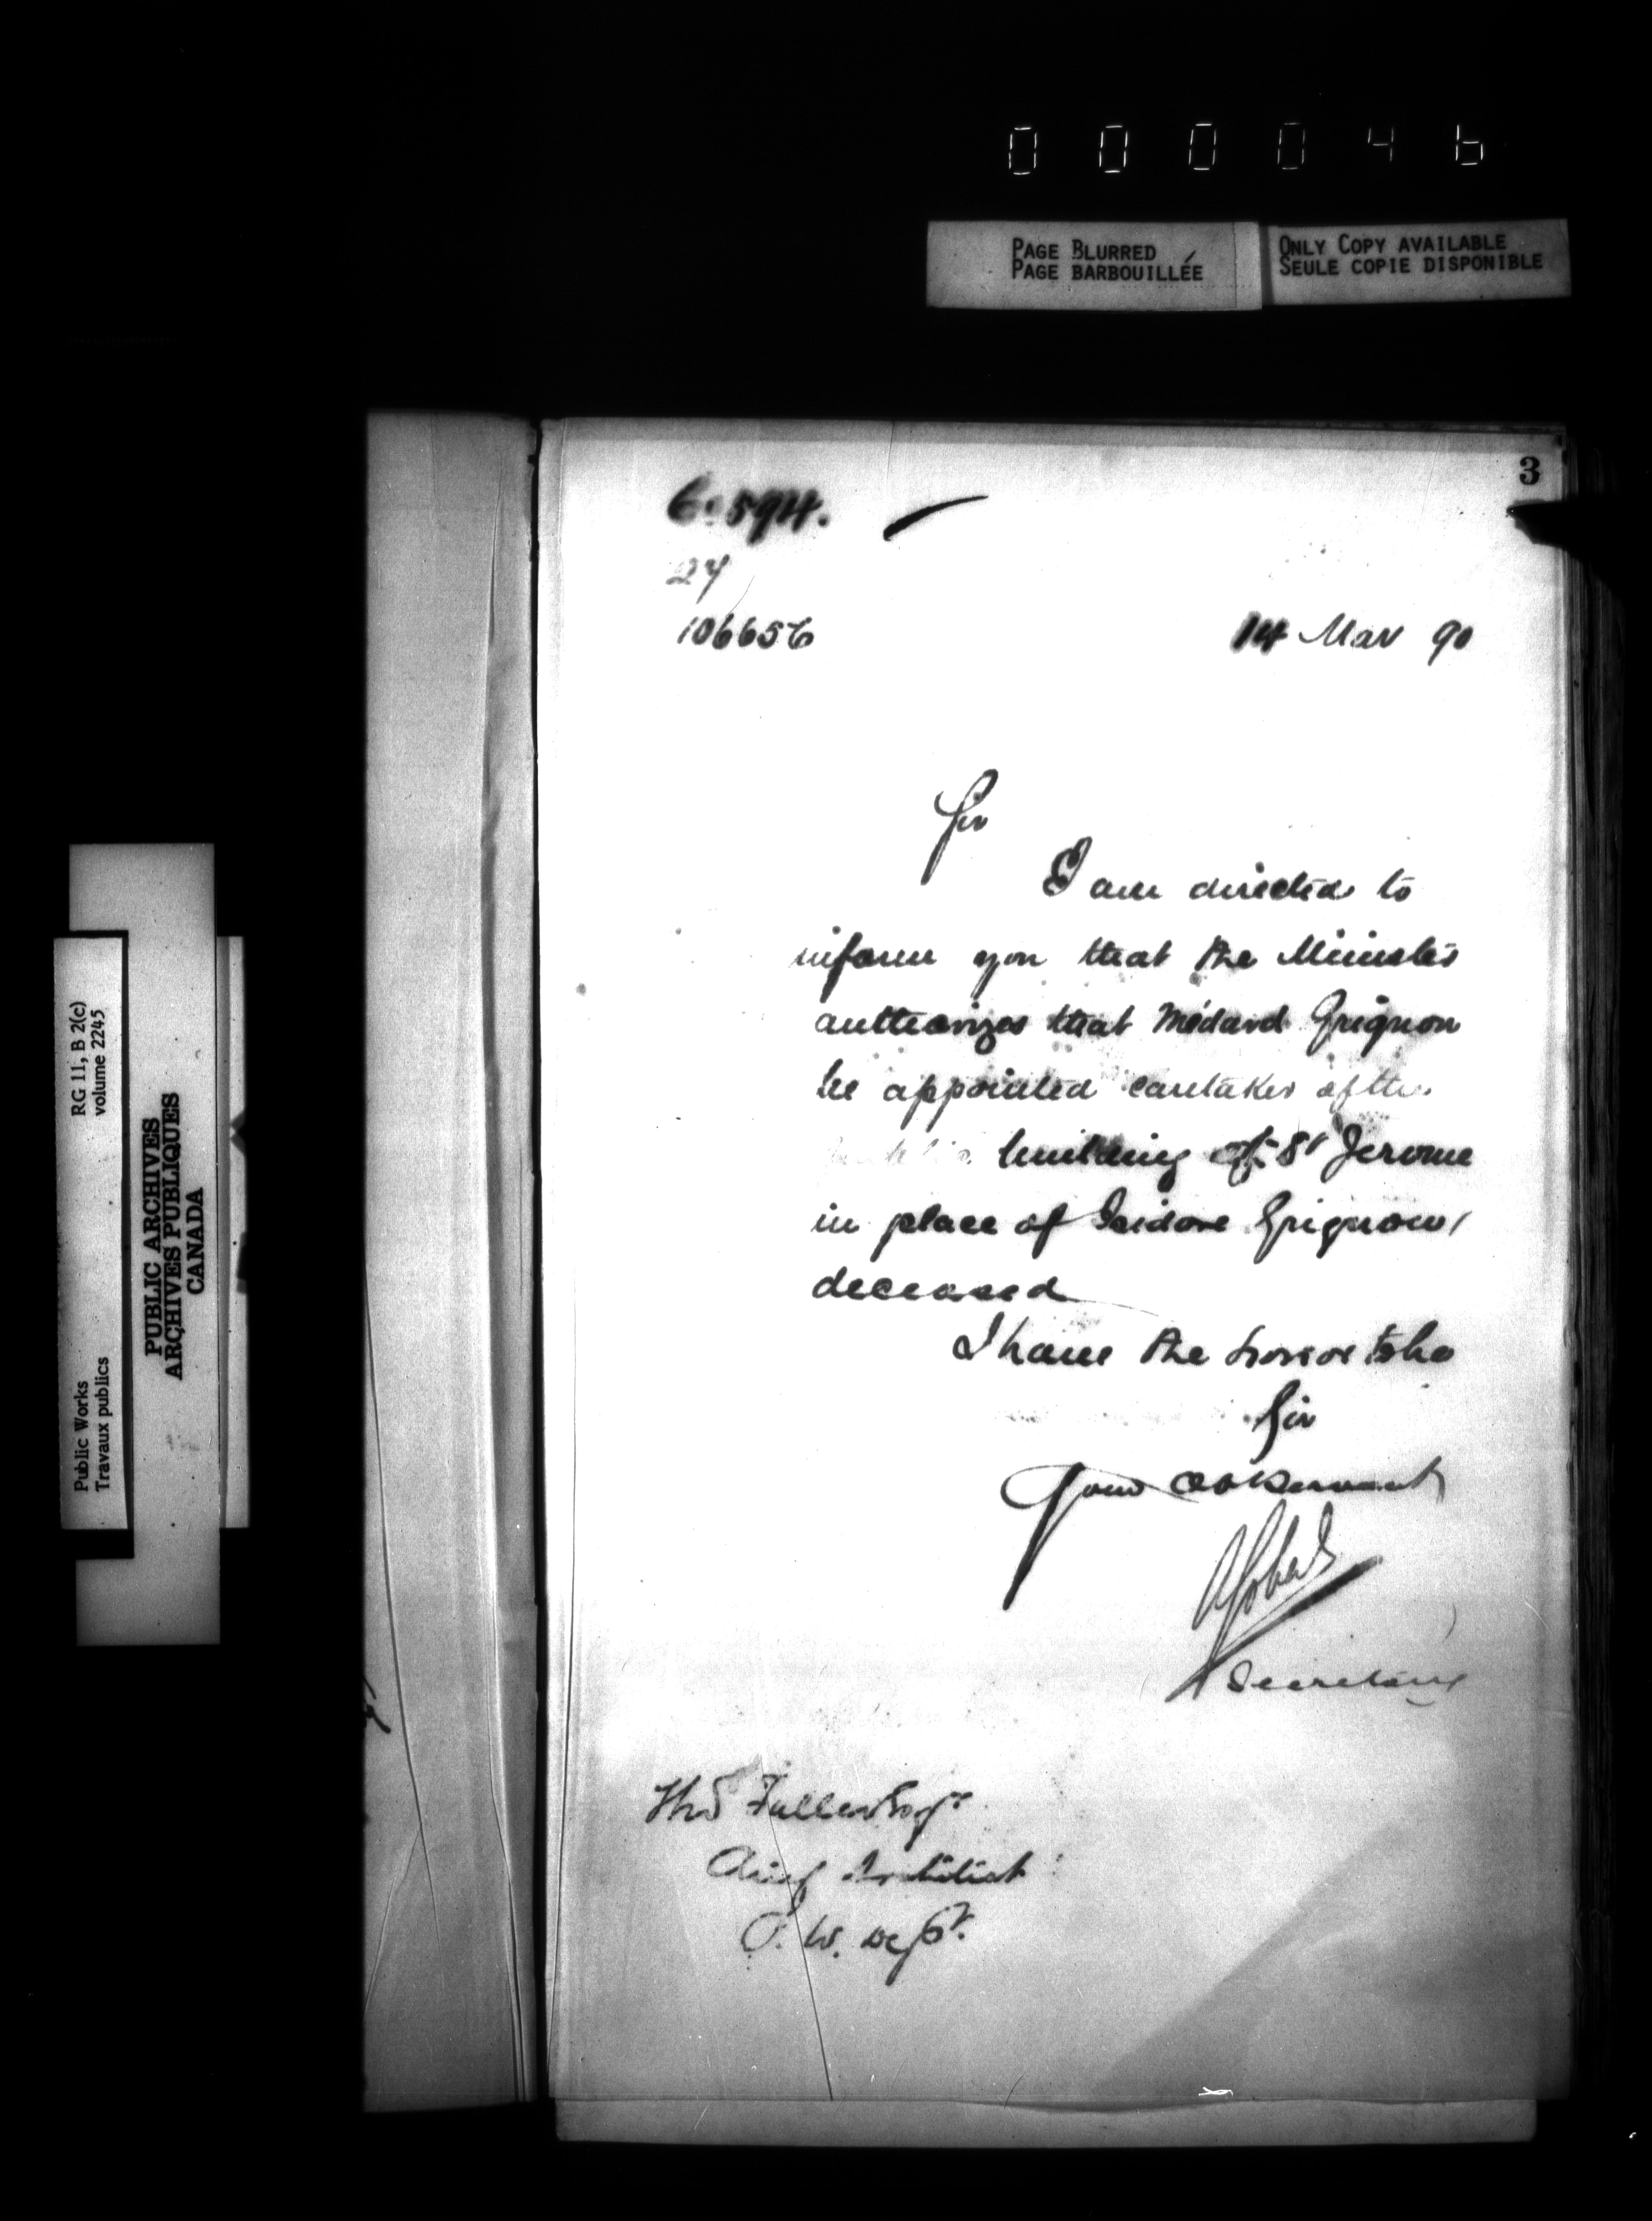 000046
PAGE BLURRED
PAGE BARBOUILLÉE
ONLY COPY AVAILABLE
SEULE COPIE DISPONIBLE
3
594.
27
106656
14 Mar 90
Sir
I am directed to
inform you that the Minister
authorizes that Médard Grignon
be appointed caretaker of the
building at St Jerome
in place of Isidore Grignon,
deceased
I have the honor to be
Sir
Your Ob Servant
Secretary
Thos Fuller Esqre
Chief Architect
P. W. Dept.
RG 11, B 2(c)
volume 2245
PUBLIC ARCHIVES
ARCHIVES PUBLIQUES
CANADA
Public Works
Travaux publics